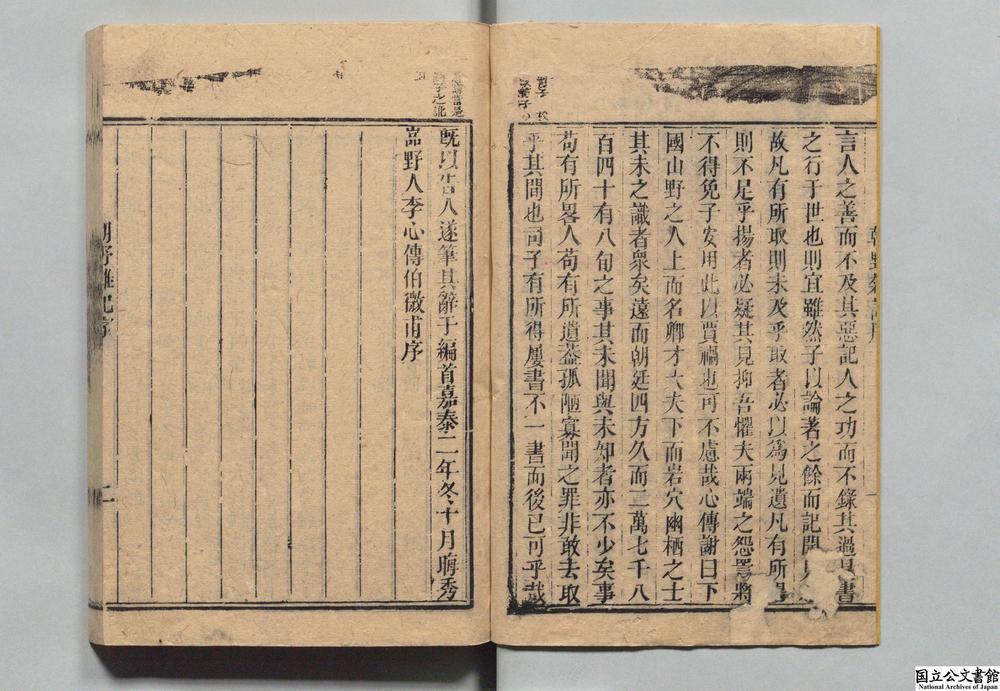 言人之善而不及其惡記人之功而不錄其過書
之行于世也則宜雖然子以論著之餘而記聞
故凡有所取則未及乎取者必以為見遺凡有所
則不足乎揚者必疑其見抑吾懼夫兩端之怨詈將
不得免子安用此以賈禍也可不慮哉心傳謝曰下
國山野之人上而名卿才大夫下而岩穴幽栖之士
其未之識者衆矣遠而朝廷四方久而二萬七千八
百四十有八旬之事其未聞與未知者亦不少矣事
苟有所畧人苟有所遺蓋孤陋寡聞之罪非敢去取
乎其間也司子有所得屢書不一書而後已可乎哉
既以告人遂筆其辭于編首嘉泰二年冬十月晦秀
嵓野人李心傳伯微甫序
朝野雜記序
二
国立公文書館
National Archives of Japan